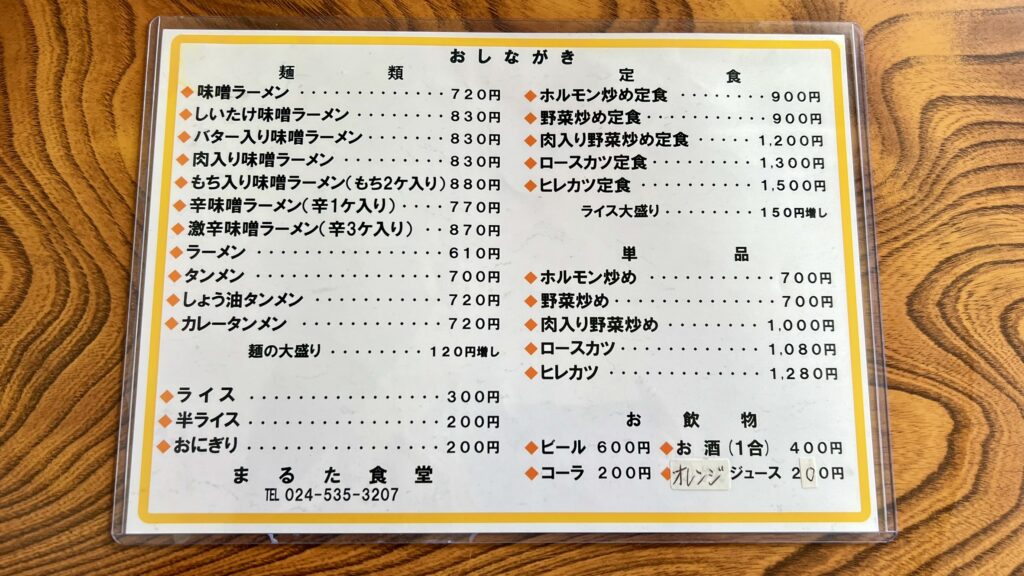 おしながき
麺類
◆味噌ラーメン ・・・・・・・・・・・・・ 720円
◆しいたけ味噌ラーメン ・・・・・・・・ 830円
◆バター入り味噌ラーメン ・・・・・・・ 830円
◆肉入り味噌ラーメン ・・・・・・・・・ 830円
◆もち入り味噌ラーメン(もち2ケ入り) 880円
◆辛味噌ラーメン(辛1ケ入り) ・・・・ 770円
◆激辛味噌ラーメン(辛3ケ入り) ・・ 870円
◆ラーメン ・・・・・・・・・・・・・・・ 610円
◆タンメン ・・・・・・・・・・・・・・・ 700円
◆しょう油タンメン ・・・・・・・・・・・ 720円
◆カレータンメン ・・・・・・・・・・・・ 720円
麺の大盛り ・・・・・・・・ 120円増し
◆ライス ・・・・・・・・・・・・・・・・ 300円
◆半ライス ・・・・・・・・・・・・・・・ 200円
◆おにぎり ・・・・・・・・・・・・・・・ 200円
まるた食堂
TEL 024-535-3207
定食
◆ホルモン炒め定食 ・・・・・・・・・ 900円
◆野菜炒め定食 ・・・・・・・・・・・ 900円
◆肉入り野菜炒め定食 ・・・・・・・ 1,200円
◆ロースカツ定食 ・・・・・・・・・ 1,300円
◆ヒレカツ定食 ・・・・・・・・・・ 1,500円
ライス大盛り ・・・・・・・・・ 150円増し
単品
◆ホルモン炒め ・・・・・・・・・・・ 700円
◆野菜炒め ・・・・・・・・・・・・・ 700円
◆肉入り野菜炒め ・・・・・・・・・ 1,000円
◆ロースカツ ・・・・・・・・・・・ 1,080円
◆ヒレカツ ・・・・・・・・・・・・ 1,280円
お飲物
◆ビール 600円 ◆お酒(1合) 400円
◆コーラ 200円 ◆オレンジジュース 200円